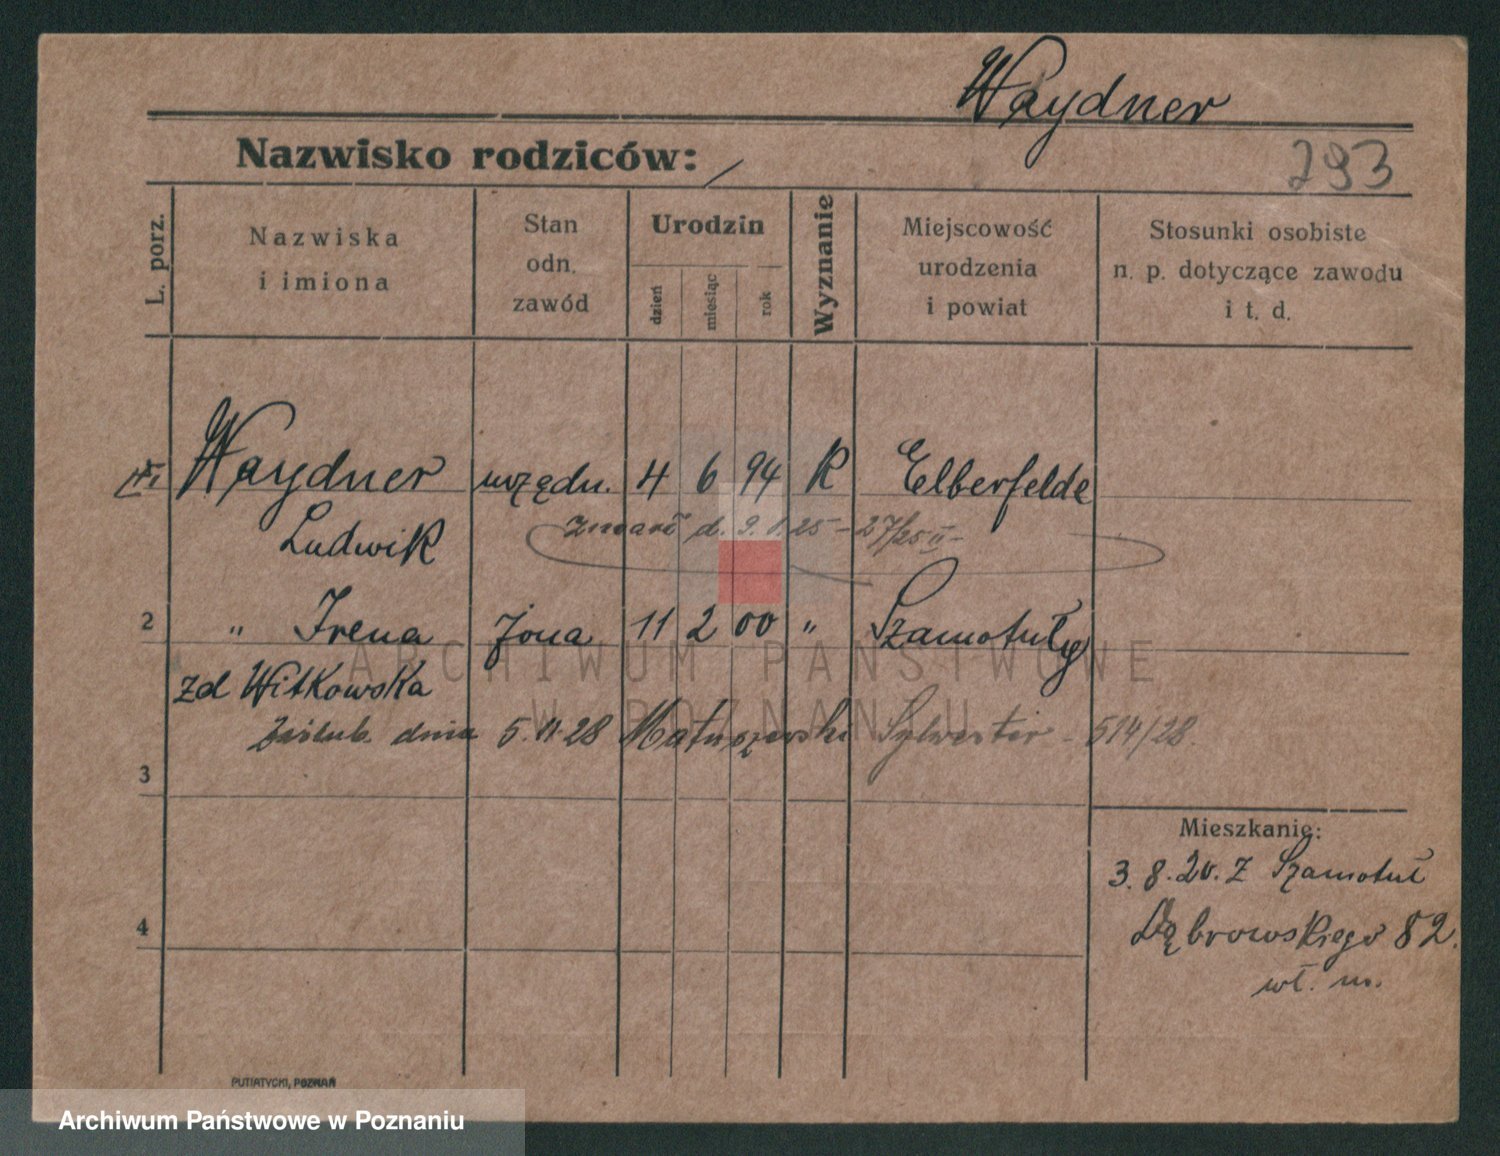 Waydner
293
Nazwisko rodziców: /
L. porz.
Nazwiska
i imiona
Stan
odn.
zawód
Urodzin
dzień
miesiąc
rok
Wyznanie
Miejscowość
urodzenia
i powiat
Stosunki osobiste
n. p. dotyczące zawodu
i t. d.
Waydner urzędn. 4 6 94 R Elberfelde
zmarł d. 9.1.25 - 27/25 II -
Ludwik
2 " Irena żona 11 2 00 " Szamotuły
zd Witkowska
zaślub. dnia 5.11.28 Matuszewski Sylwester - 514/28
3
Mieszkanie:
3.8.20. z Szamotuł
4
Dąbrowskiego 82.
wł. m.
PUTIATYCKI, POZNAŃ
ARCHIWUM PAŃSTWOWE
W POZNANIU
Archiwum Państwowe w Poznaniu